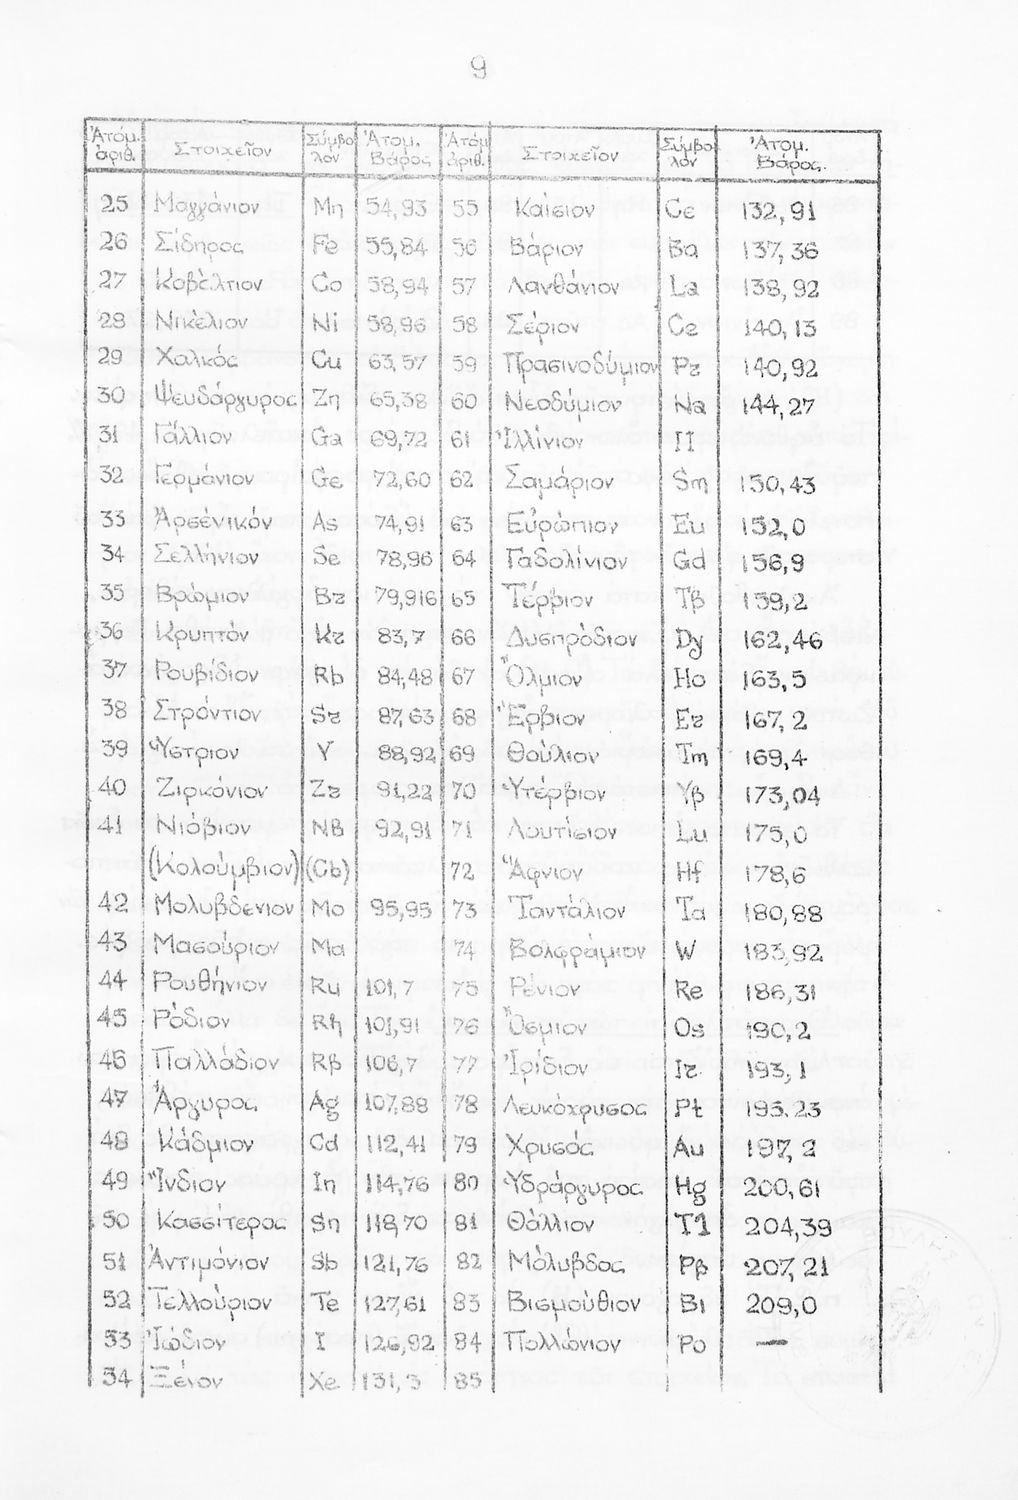 9
Ἀτόμ. ἀριθ. Στοιχεῖον Σύμβολον Ἀτομ. Βάρος Ἀτόμ ἀριθ. Στοιχεῖον Σύμβολον Ἀτομ. Βάρος.
25 Μαγγάνιον Mn 54,93 55 Καίσιον Ce 132,91
26 Σίδηρος Fe 55,84 56 Βάριον Ba 137,36
27 Κοβάλτιον Co 58,94 57 Λανθάνιον La 138,92
28 Νικέλιον Ni 58,96 58 Σέριον Cz 140,13
29 Χαλκός Cu 63,57 59 Πρασινοδύμιον Pz 140,92
30 Ψευδάργυρος Zn 65,38 60 Νεοδύμιον Na 144,27
31 Γάλλιον Ga 69,72 61 Ἰλλίνιον Il
32 Γερμάνιον Ge 72,60 62 Σαμάριον Sm 150,43
33 Ἀρσένικόν As 74,91 63 Εὐρώπιον Eu 152,0
34 Σελλήνιον Se 78,96 64 Γαδολίνιον Gd 156,9
35 Βρώμιον Bz 79,916 65 Τέρβιον Tβ 159,2
36 Κρυπτόν Kz 83,7 66 Δυσπρόδιον Dy 162,46
37 Ρουβίδιον Rb 84,48 67 Ὅλμιον Ho 163,5
38 Στρόντιον Sz 87,63 68 Ἔρβιον Ez 167,2
39 Ὕστριον Y 88,92 69 Θούλιον Tm 169,4
40 Ζιρκόνιον Zz 91,22 70 Ὑτέρβιον Yβ 173,04
41 Νιόβιον Nβ 92,91 71 Λουτίσιον Lu 175,0
(Κολούμβιον) (Cb) 72 Ἅφνιον Hf 178,6
42 Μολυβδένιον Mo 95,95 73 Ταντάλιον Ta 180,88
43 Μασούριον Ma 74 Βολφράμιον W 183,92
44 Ρουθήνιον Ru 101,7 75 Ρένιον Re 186,31
45 Ρόδιον Rh 101,91 76 Ὄσμιον Os 190,2
46 Παλλάδιον Rβ 106,7 77 Ἰρίδιον Iz 193,1
47 Ἄργυρος Ag 107,88 78 Λευκόχρυσος Pt 195.23
48 Κάδμιον Cd 112,41 79 Χρυσός Au 197,2
49 Ἴνδιον In 114,76 80 Ὑδράργυρος Hg 200,61
50 Κασσίτερος Sn 118,70 81 Θάλλιον Tl 204,39
51 Ἀντιμόνιον Sb 121,76 82 Μόλυβδος Pβ 207,21
52 Τελλούριον Te 127,61 83 Βισμούθιον Bi 209,0
53 Ἰώδιον I 126,92 84 Πολλώνιον Po —
54 Ξένον Xe 131,3 85